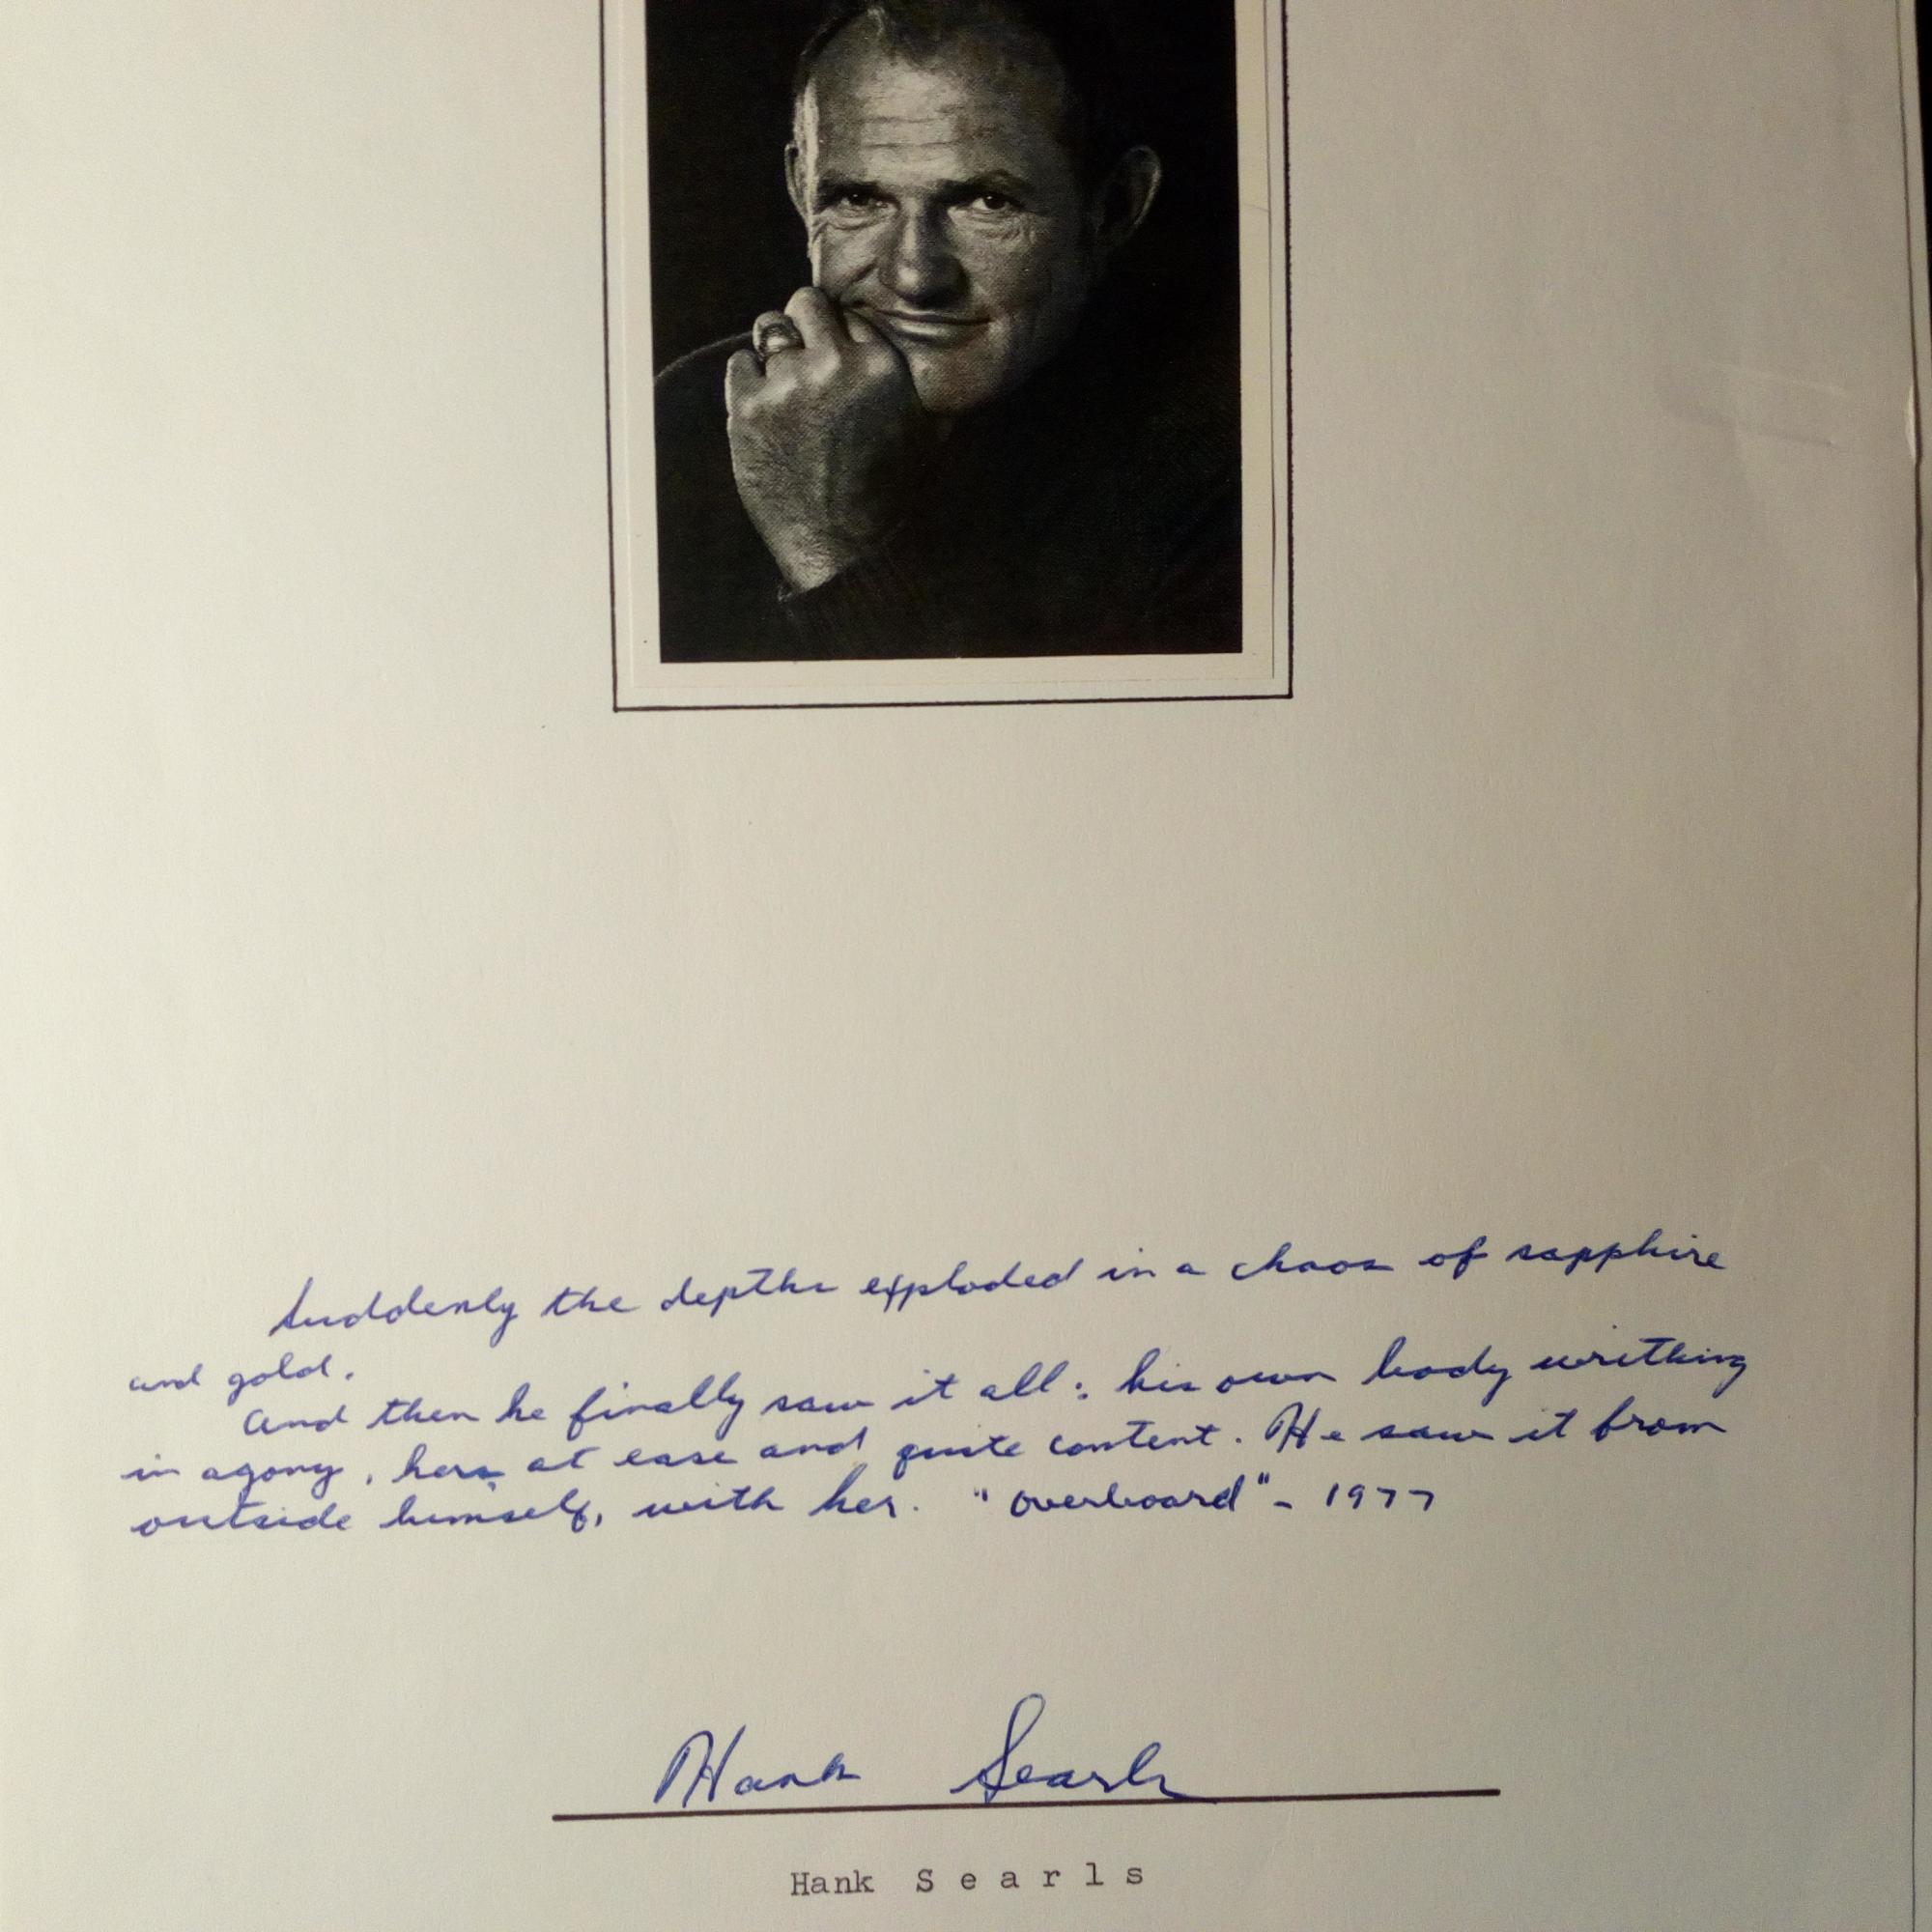 Suddenly the depths exploded in a chaos of sapphire
and gold.
And then he finally saw it all: his own body writhing
in agony, hers at ease and quite content. He saw it from
outside himself, with her. "Overboard" - 1977
Hank Searls
Hank Searls